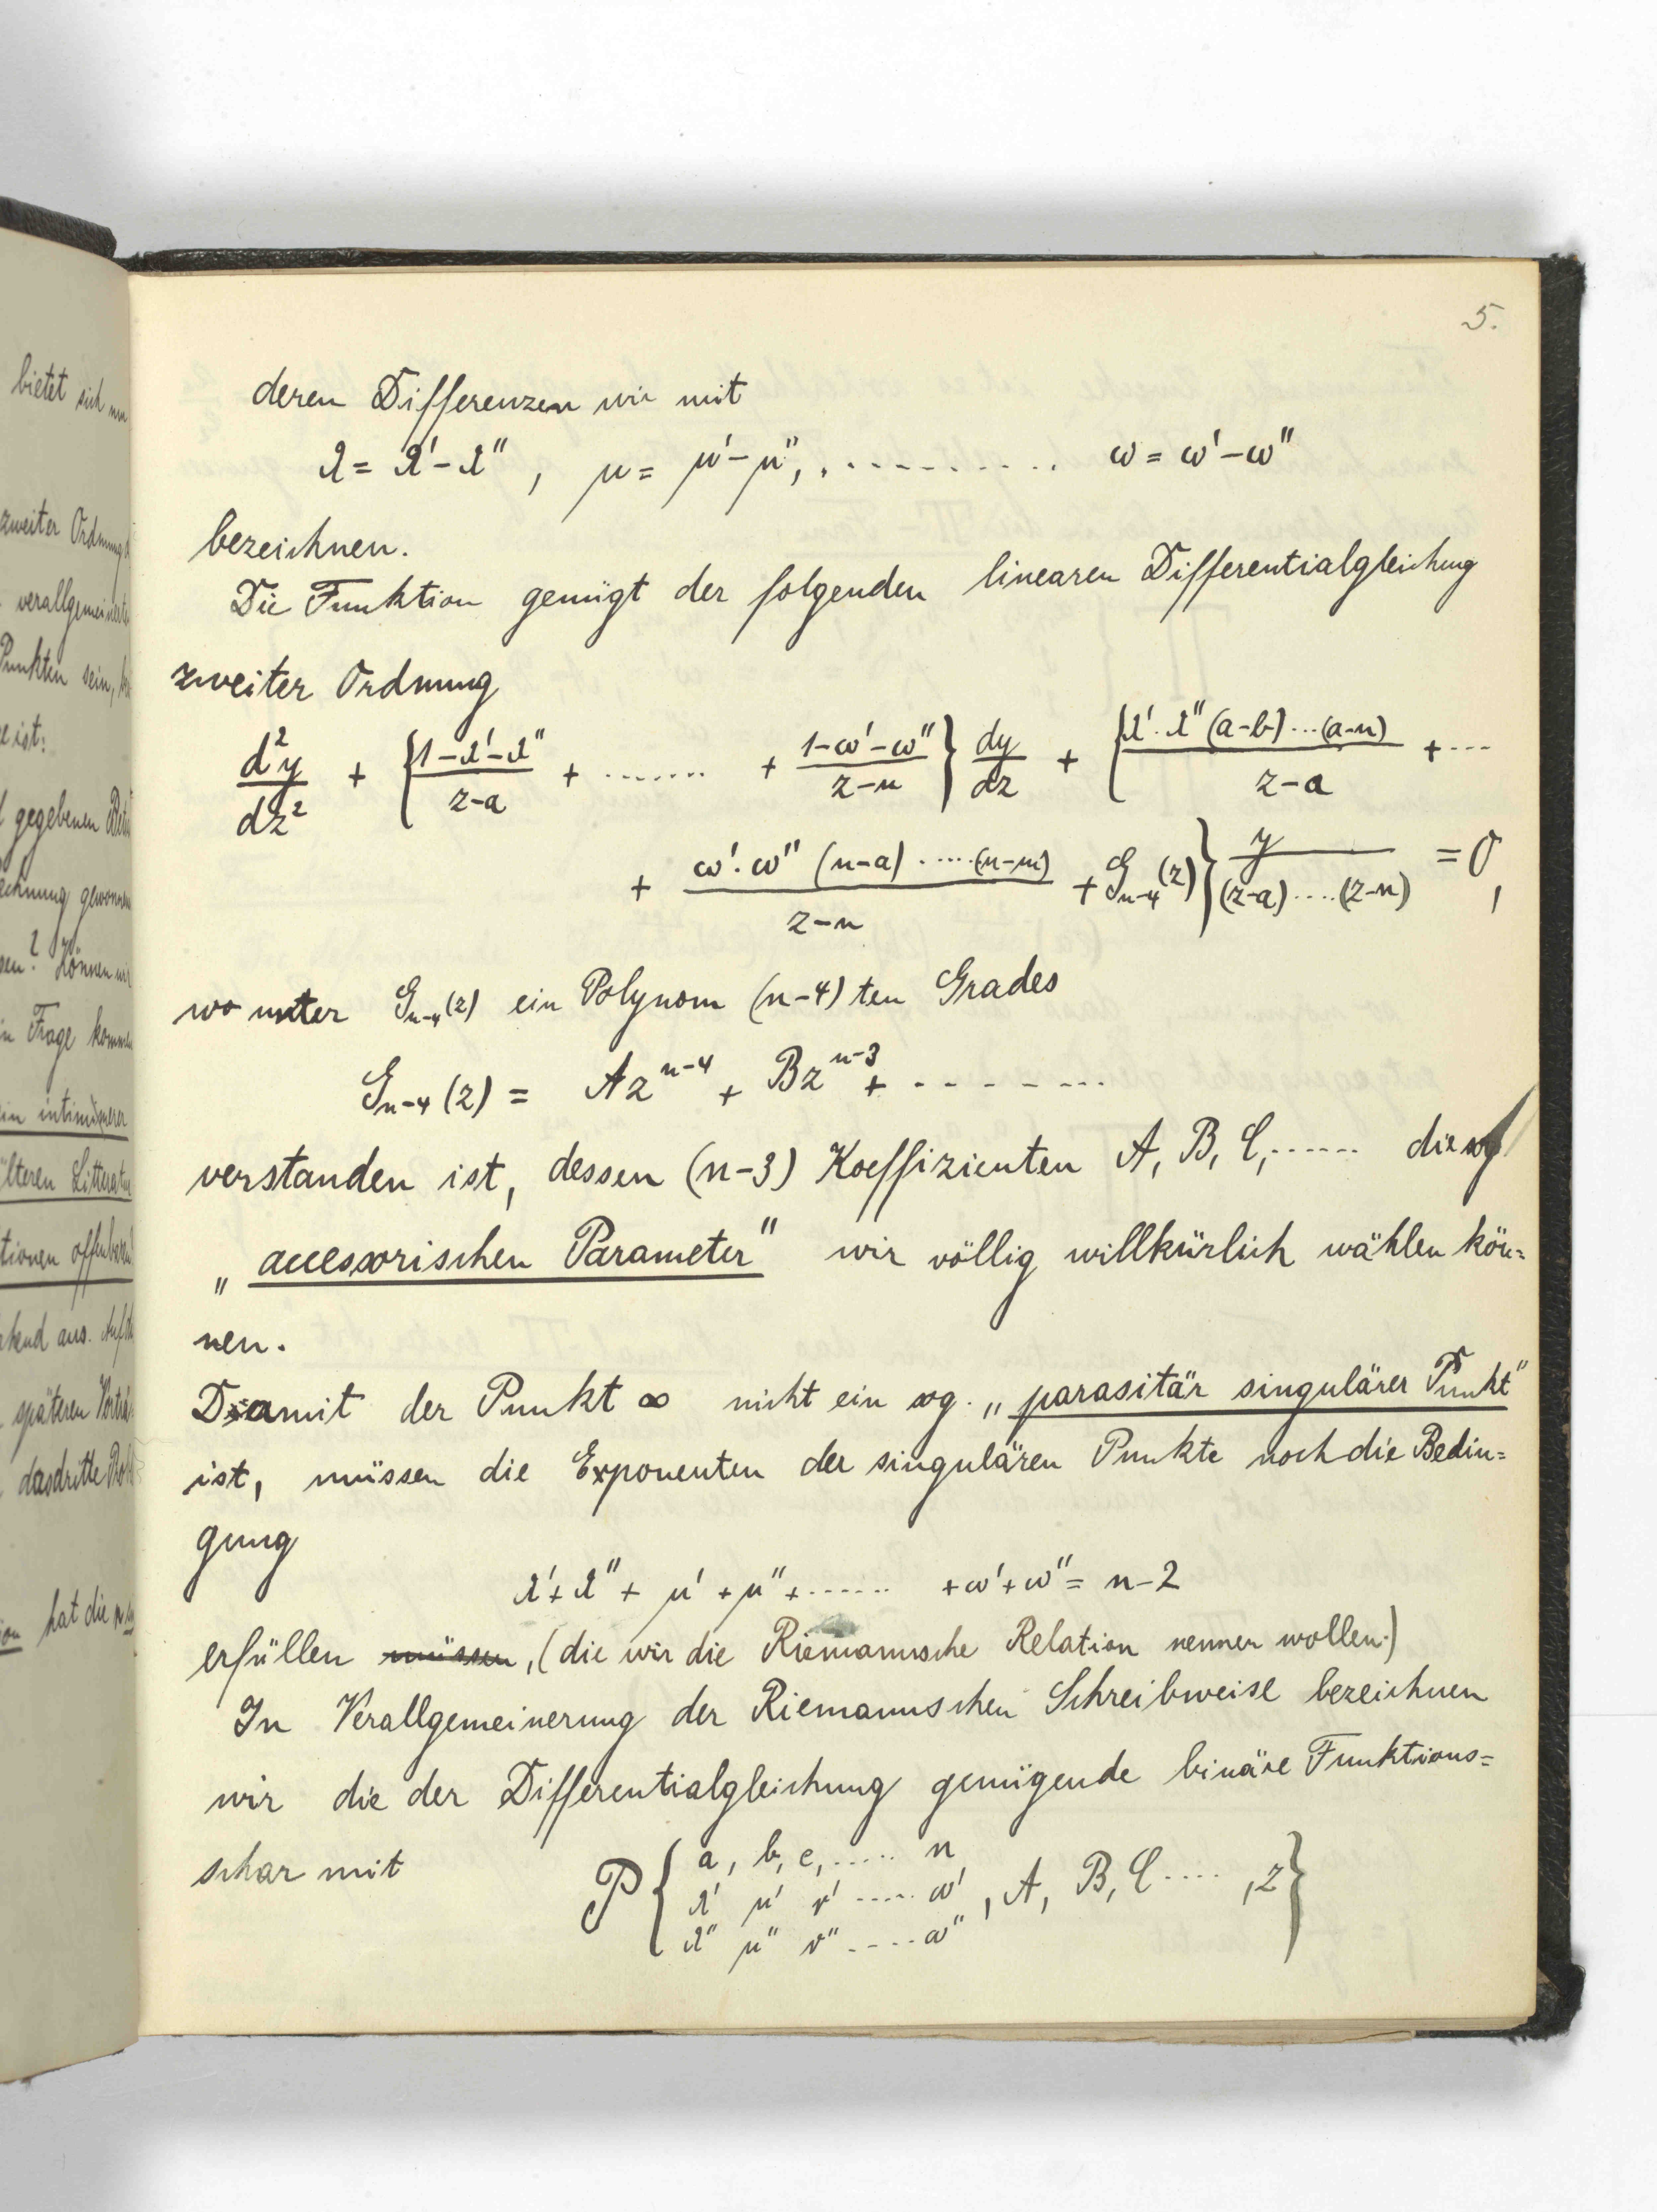 bietet sich nun
zweiter Ordnung
verallgemeinerte
Punkten sein,
ist:
gegebenen
gewonnen
? Können wir
in Frage kommen
ein intimerer
älteren Litteratur
offenbaren
aus.
späteren Vorträ-
das dritte
hat die
5.
deren Differenzen wir mit
λ = λ' - λ'' , μ = μ' - μ'', . . . . . . . . . . . ω = ω' - ω''
bezeichnen.
Die Funktion genügt der folgenden linearen Differentialgleichung
zweiter Ordnung
d²y/dz² + {(1-λ'-λ'')/(z-a) + ....... + (1-ω'-ω'')/(z-n)} dy/dz + {λ'.λ''(a-b)...(a-n)/(z-a) + ...
+ ω'.ω''(n-a).....(n-m)/(z-n) + G_{n-4}(z)} y/((z-a)....(z-n)) = 0,
wo unter G_{n-4}(z) ein Polynom (n-4)ten Grades
G_{n-4}(z) = Az^{n-4} + Bz^{n-3} + - - - - - ...
verstanden ist, dessen (n-3) Koeffizienten A, B, C, ...... die sog
„accessorischen Parameter" wir völlig willkürlich wählen kön=
nen.
Damit der Punkt ∞ nicht ein sog. „parasitär singulärer Punkt"
ist, müssen die Exponenten der singulären Punkte noch die Bedin=
gung
λ'+λ''+ μ'+μ''+ ...... +ω'+ω'' = n-2
erfüllen müssen, (die wir die Riemannsche Relation nennen wollen.)
In Verallgemeinerung der Riemannschen Schreibweise bezeichnen
wir die der Differentialgleichung genügende binäre Funktions=
schar mit
P { a, b, c, ..... n
λ' μ' ν' ..... ω' , A, B, C .... , z }
λ'' μ'' ν'' .... ω''